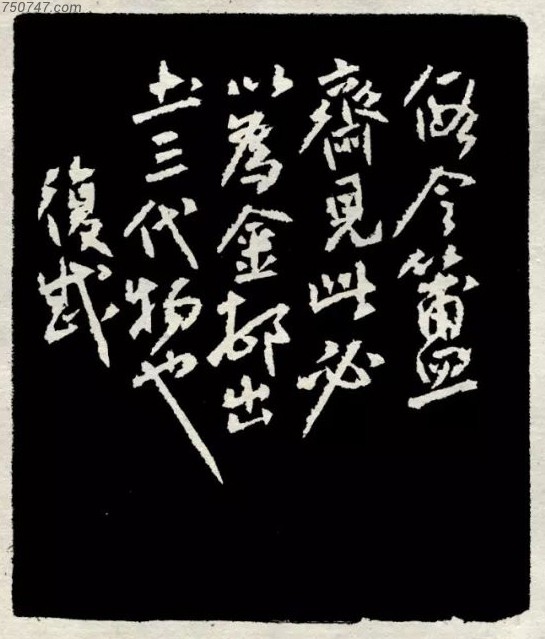 750747.com
假令簠
齋見此必
以為金邨出
土三代物也
復戡